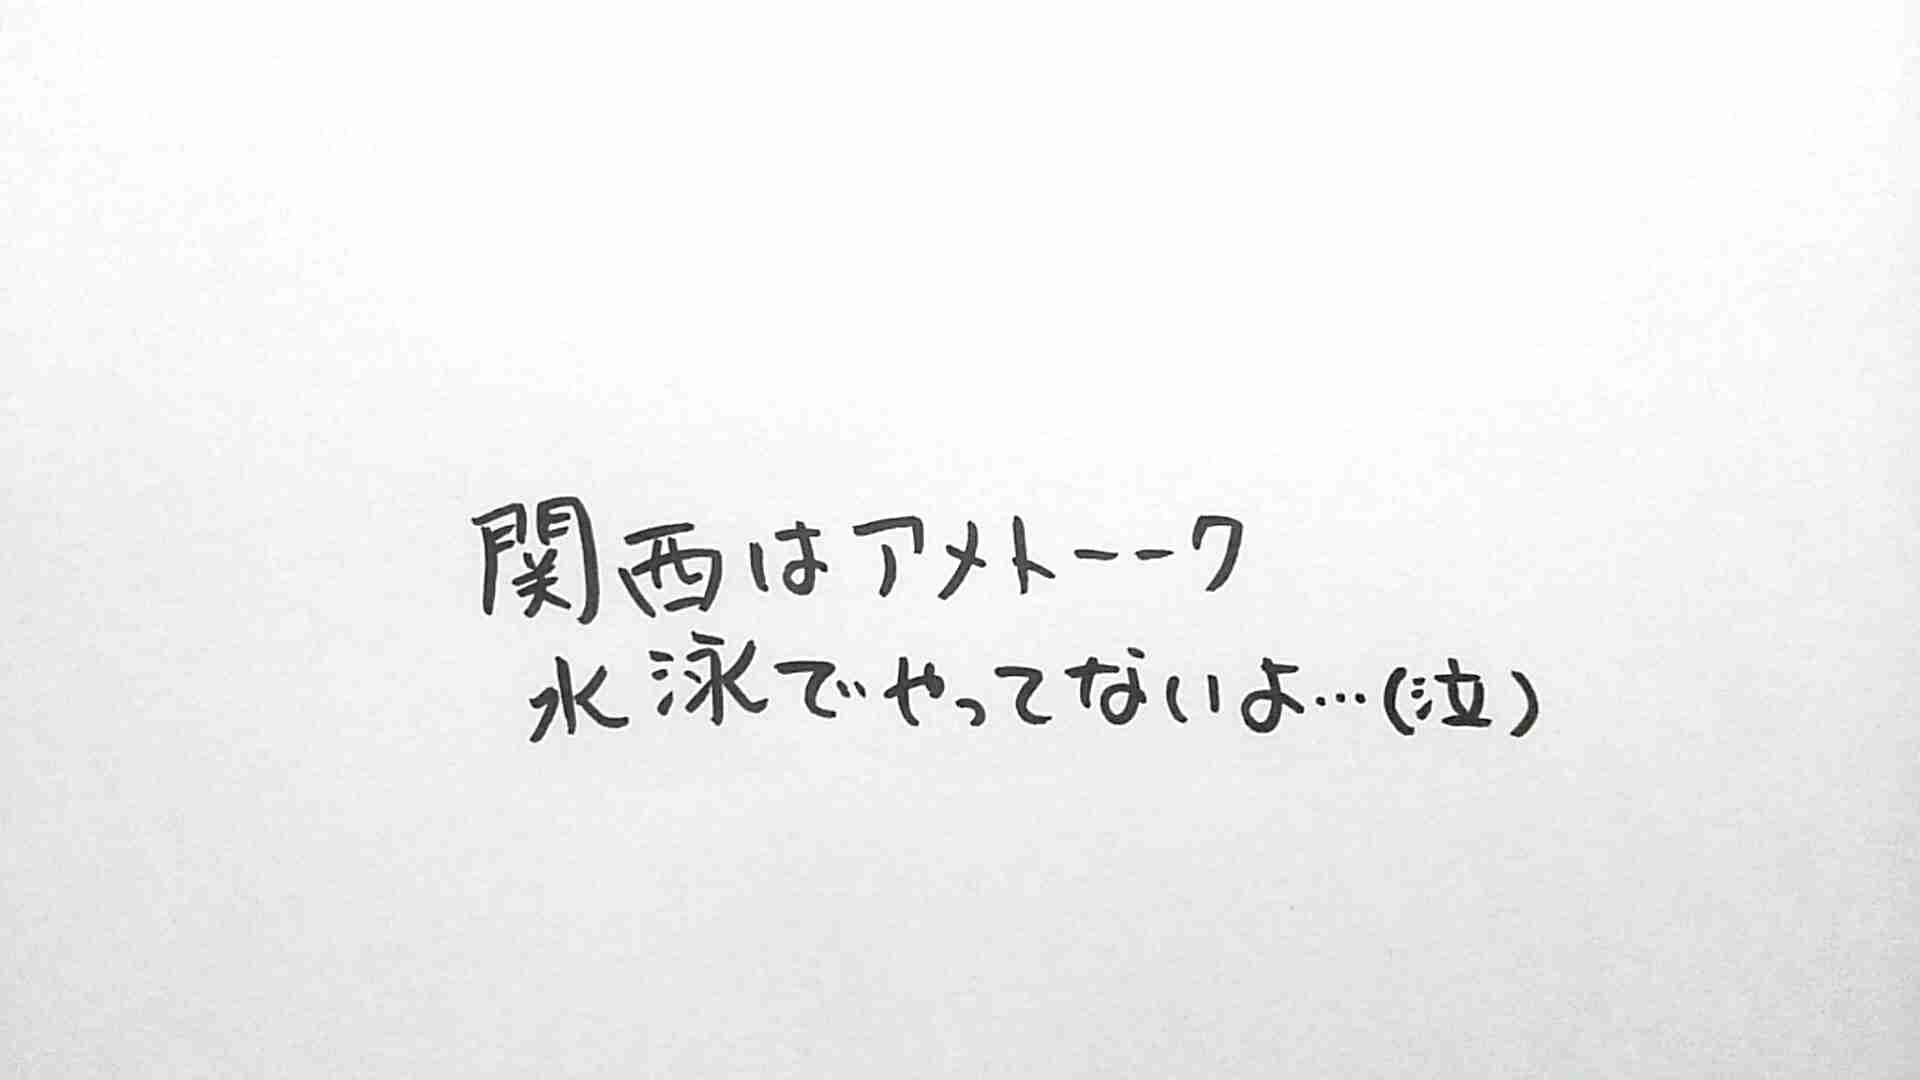 関西はアメトーーク
水泳でやってないよ…(泣)